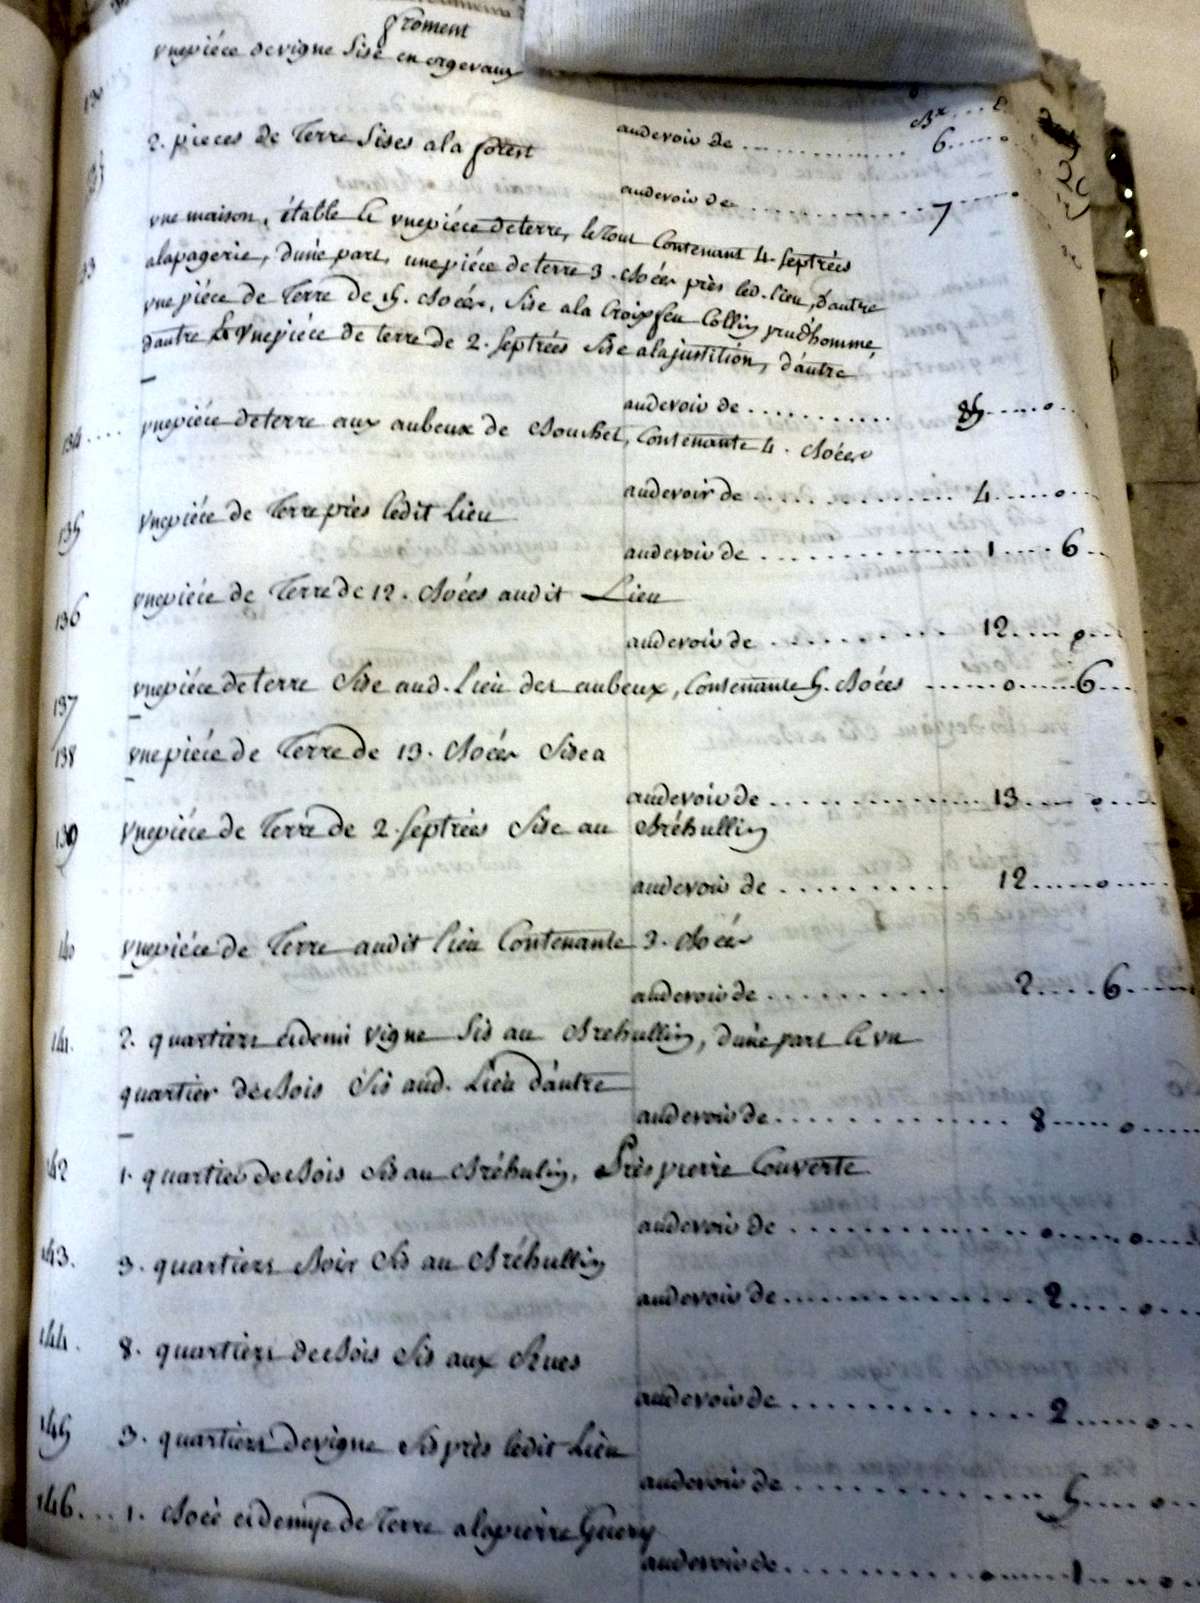 froment
vnepiéce de vigne Sise en orgevaux
130
Bx.
audevoir de ............ 6 .... o
2. pieces de Terre Sises a la forest
audevoir de ............ 7 ...... o
vne maison, étable & vnepiéce de terre, le tout Contenant 4. Septrées
a la pagerie, d'une part, une piéce de terre 3. Boées près led. lieu, d'autre
vne piéce de Terre de 5. Boées, Sise a la Croix feu Collin prud'homme,
d'autre & vnepiéce de terre de 2. Septrées Sise a la justition, d'autre
audevoir de .......... 85 ..... o
134 .... vnepiéce de terre aux aubeux de Bouchet, Contenante 4. Boées
audevoir de ............ 4 ..... o
135 vnepiéce de Terre près ledit Lieu
audevoir de ............ 1 .... 6
136 vnepiéce de Terre de 12. Boées audit Lieu
audevoir de ............ 12 .... o
137 vnepiéce de terre Sise aud. Lieu des aubeux, Contenante 5. Boées ...... o ..... 6
138 vnepiéce de Terre de 13. Boées Sise a
audevoir de ............ 13 .... o
139 vnepiéce de Terre de 2. Septrées Sise au Bréhullin
audevoir de .......... 12 ..... o
140 vnepiéce de Terre audit lieu Contenante 3. Boées
audevoir de ............ 2 .... 6
141. 2. quartiers et demi vigne Sis au Brehullin, d'une part & vn
quartier de Bois Sis aud. Lieu d'autre
audevoir de ............ 8 ..... o
142 1. quartier de Bois Sis au Bréhulin, Près pierre Couverte
audevoir de ............ o ...... o
143. 3. quartiers Bois Sis au Bréhullin
audevoir de ............ 2 .... o
144. 8. quartiers de Bois Sis aux Rues
audevoir de ............ 2 ..... o
145 3. quartiers de vigne Sis près ledit Lieu
audevoir de ............ 5 .... o
146 ... 1. Boée et demye de Terre a la pierre Guery
audevoir de ............ o ..... 1 .... o